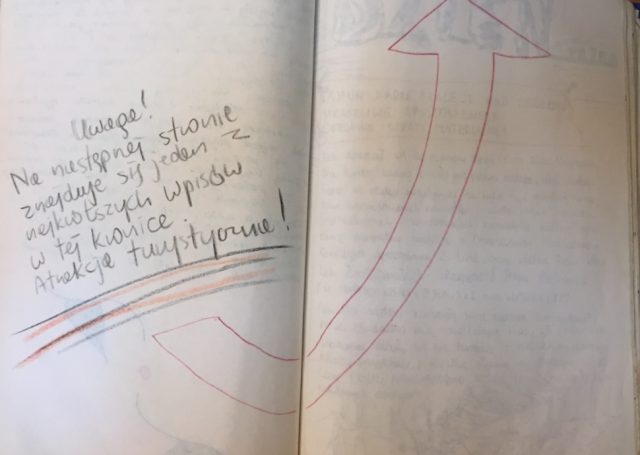 Uwaga!
Na następnej stronie
znajduje się jeden z
najkrótszych wpisów
w tej kronice.
Atrakcja turystyczna!